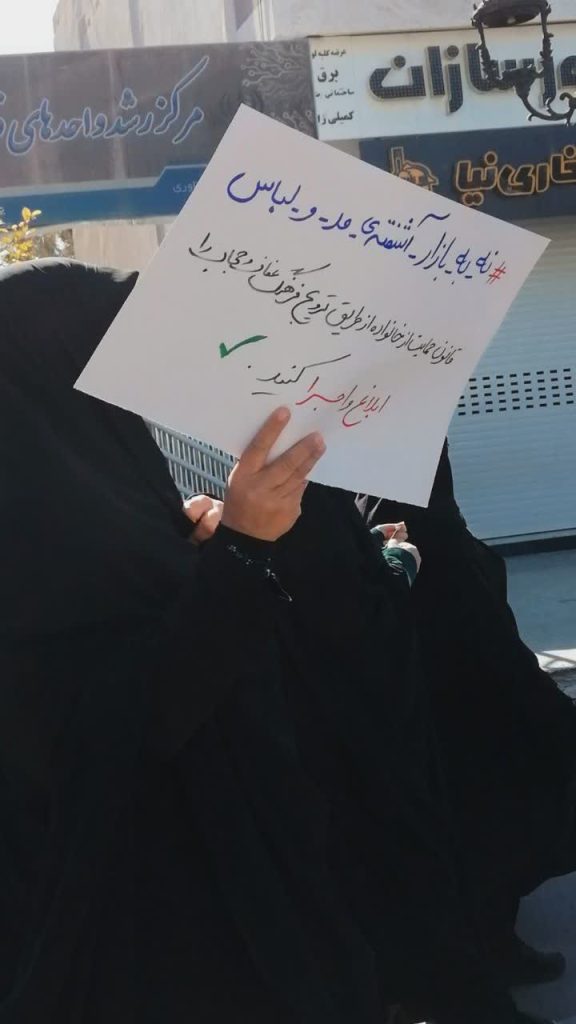 مرکز رشد واحدهای
عرضه کلیه لو
برق
ساختمانی
کمیلی
سازان
نیا
#نه_به_بازار_آشفته‌ی_مد_و_لباس
قانون حمایت از خانواده از طریق ترویج فرهنگ عفاف و حجاب را
ابلاغ و اجرا کنید.